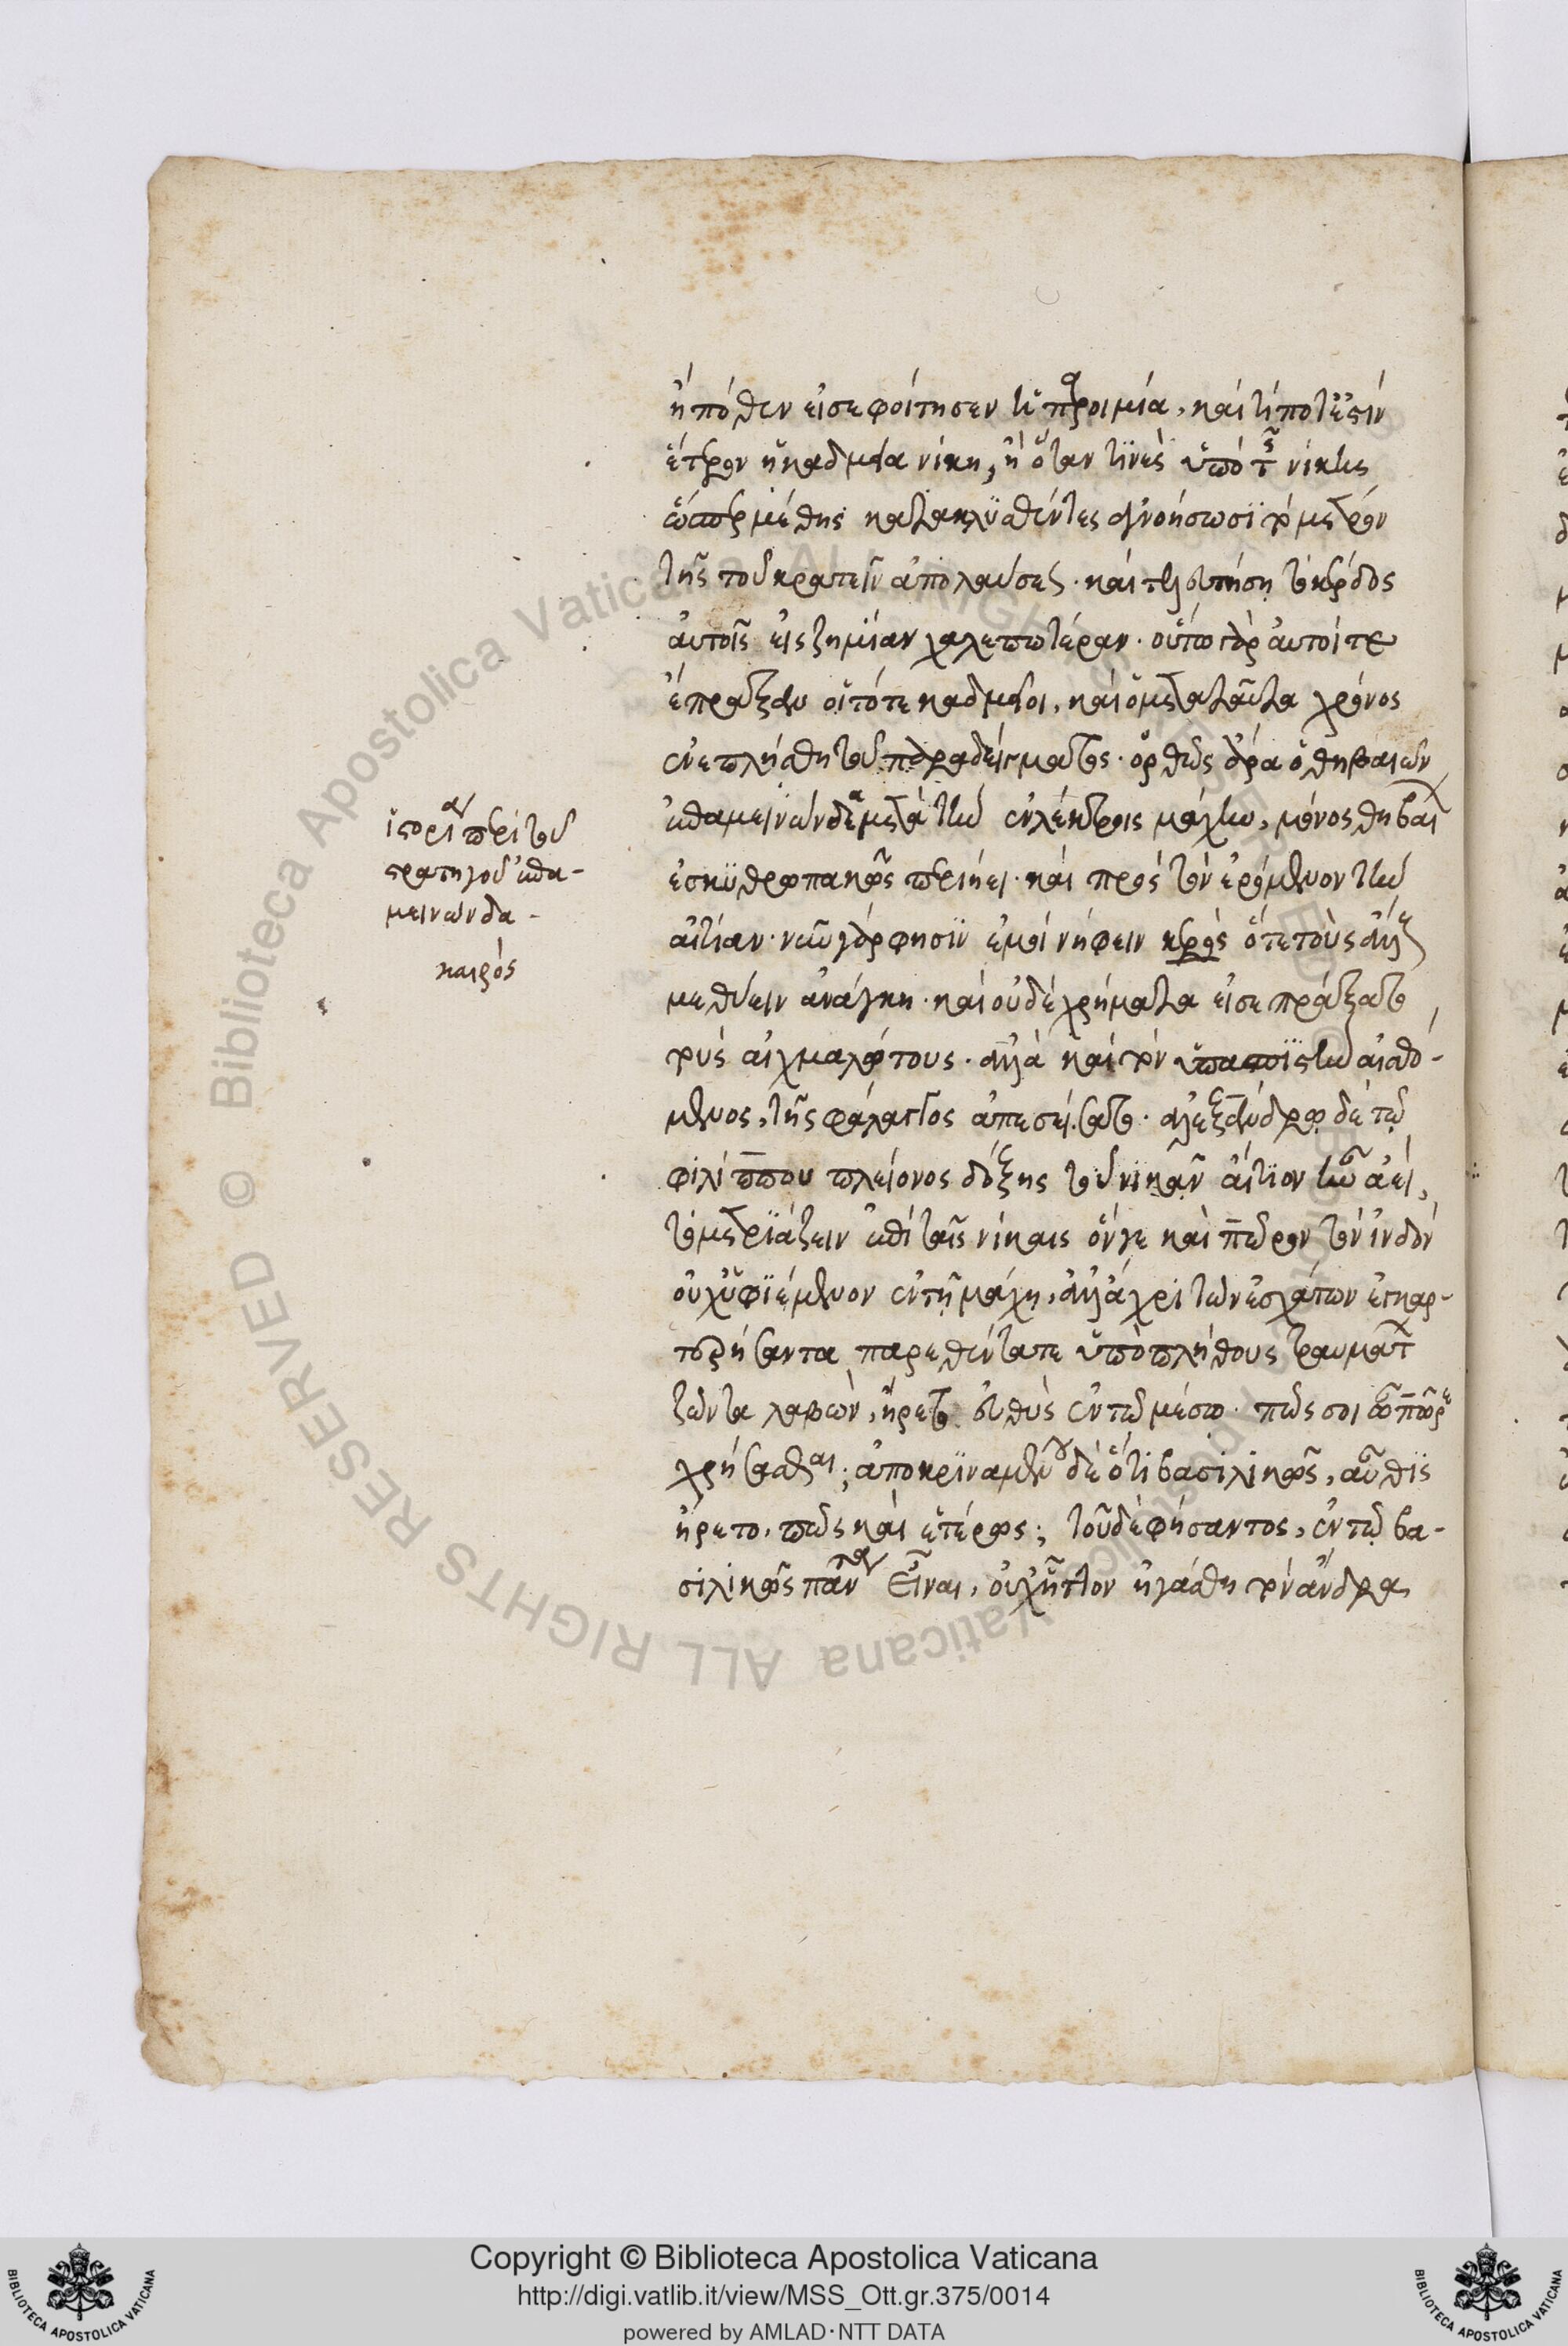 ἢ πόθεν εἰσεφοίτησεν ἡ παροιμία, καὶ τί ποτέ ἐστιν
ἕτερον ἡ καδμεία νίκη, ἢ ὅταν τινὲς ὑπὸ τῆς νίκης
ὥσπερ μέθης κατακλυσθέντες ἀγνοήσωσι τὸ μέτρον
τῆς τοῦ κρατεῖν ἀπολαύσεως. καὶ τὸ κέρδος
αὐτοῖς εἰς ζημίαν χαλεπωτέραν. οὕτω γὰρ αὐτοί τε
ἔπραξαν οἱ τότε καδμεῖοι, καὶ ὁ μετὰ ταῦτα χρόνος
ἐνεπλήσθη τοῦ παραδείγματος. ὀρθῶς ἄρα ὁ θηβαίων
ἐπαμεινώνδας μετὰ τὴν ἐν λεύκτροις μάχην, μόνος θηβαί
ἐσκυθρωπακὼς περιῄει. καὶ πρὸς τὸν ἐρόμενον τὴν
αἰτίαν. νῦν γάρ φησιν ἐμοὶ νήφειν καιρὸς ὅτε τοὺς ἄλλους
μεθύειν ἀνάγκη. καὶ οὐδὲ χρήματα εἰσεπράξατο
τοὺς αἰχμαλώτους. ἀλλὰ καὶ τὸν ὑπασπιστὴν αἰσθό-
μενος, τῆς φάλαγγος ἀπεσείσατο. ἀλεξάνδρῳ δὲ τῷ
φιλίππου πλείονος δόξης τοῦ νικᾶν αἴτιον ἦν ἀεί,
τὸ μετριάζειν ἐπὶ ταῖς νίκαις ὅν γε καὶ πῶρον τὸν ἰνδὸν
οὐχ ὑφιέμενον ἐν τῇ μάχῃ, ἀλλ' ἄχρι τῶν ἐσχάτων ἐγκαρ-
τερήσαντα παρεθέντα τε ὑπὸ πλήθους τραυμάτ
ζῶντα λαβών, ἤρετο εὐθὺς ἐν τῷ μέσῳ. πῶς σοι ὦ πῶρε
χρήσεσθαι; ἀποκριναμένου δὲ ὅτι βασιλικῶς, αὖθις
ἤρετο. πῶς καὶ ἑτέρως; τοῦ δὲ φήσαντος, ἐν τῷ βα-
σιλικῶς πάντα εἶναι, οὐχ ἧττον ἠγάσθη τὸν ἄνδρα
ἱστορία περὶ τοῦ
στρατηγοῦ ἐπα-
μεινώνδα -
καιρός
Copyright © Biblioteca Apostolica Vaticana
http://digi.vatlib.it/view/MSS_Ott.gr.375/0014
powered by AMLAD·NTT DATA
BIBLIOTECA APOSTOLICA VATICANA
BIBLIOTECA APOSTOLICA VATICANA
© Biblioteca Apostolica Vaticana ALL RIGHTS RESERVED